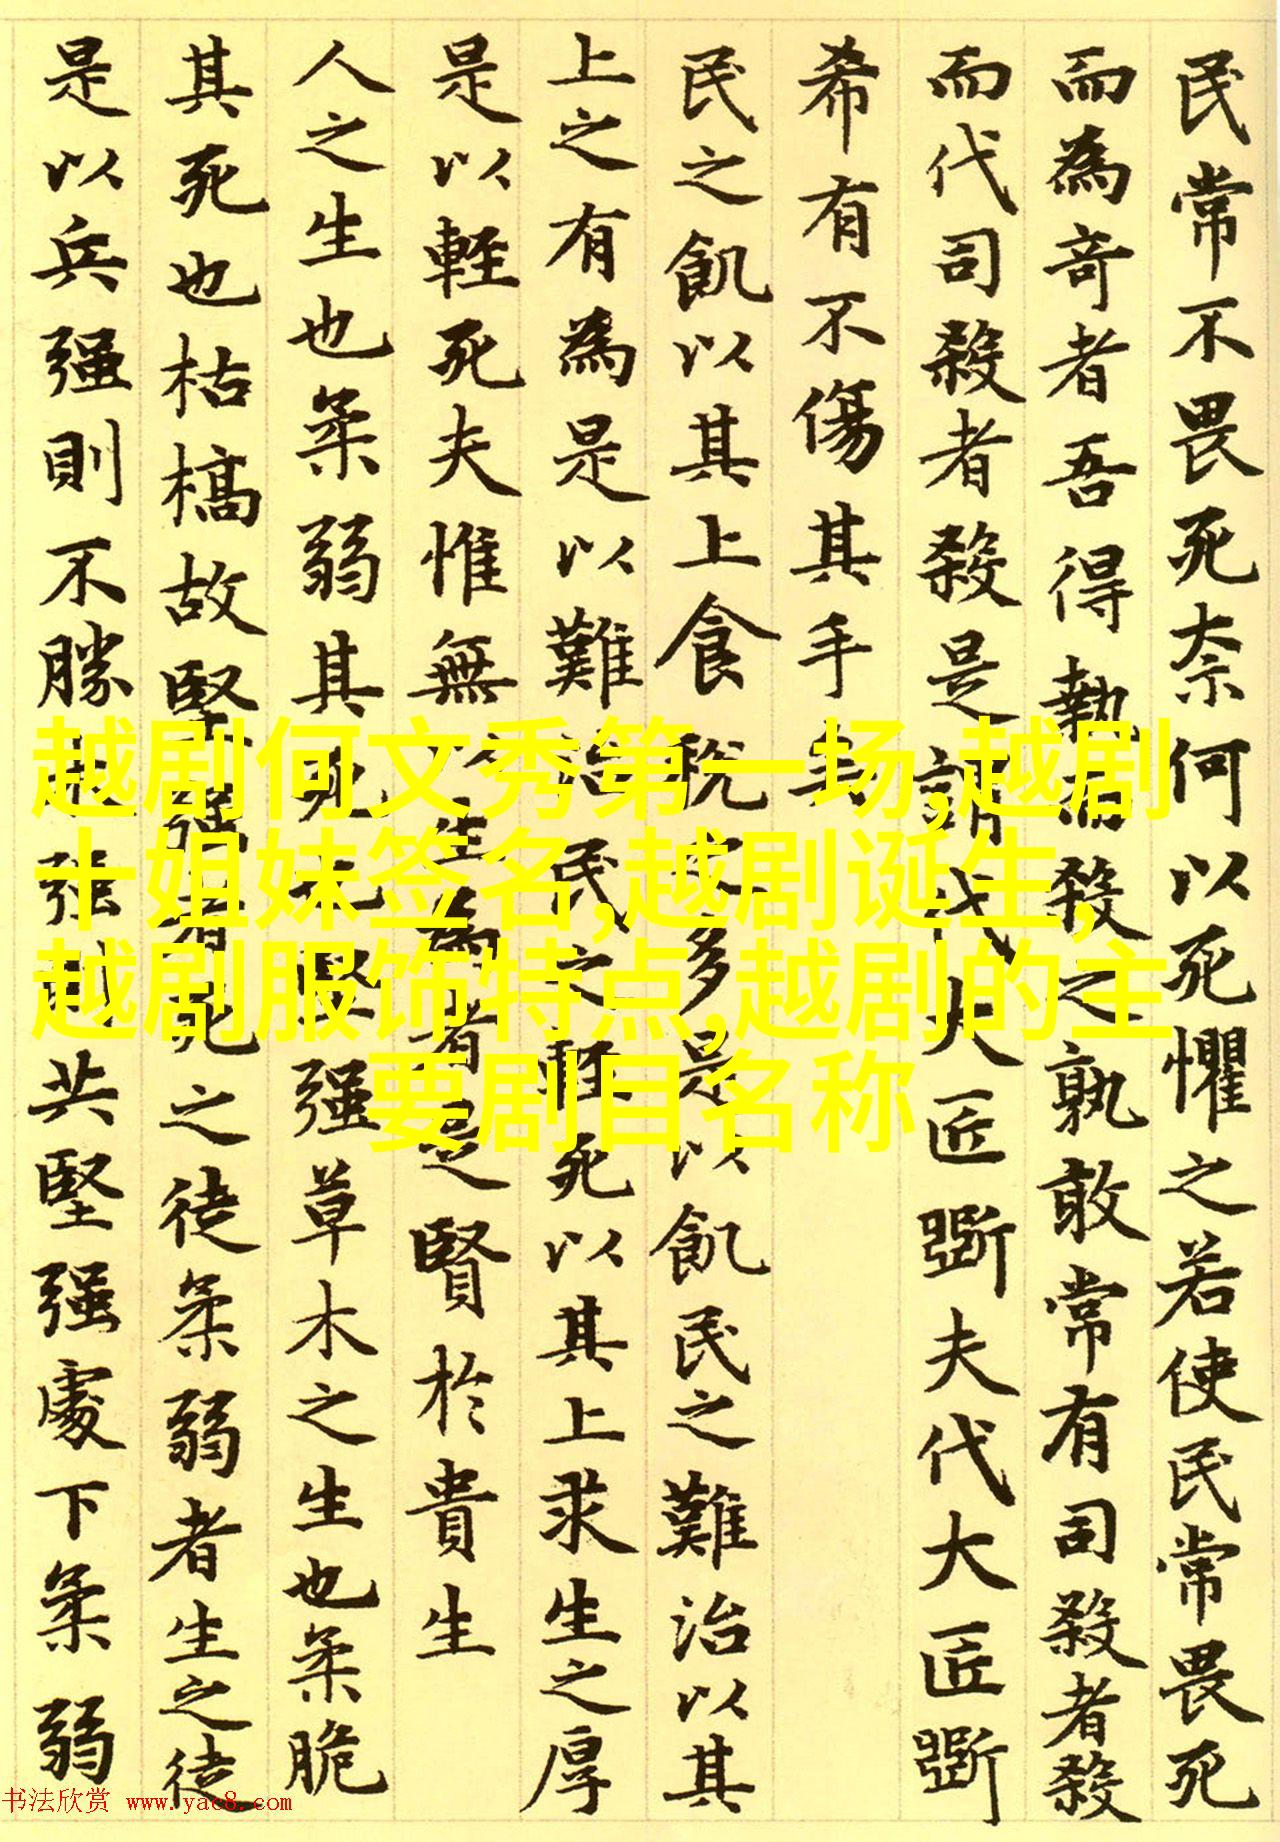 民常不畏死柰何以死懼之若使民常畏死
而為奇者吾得執而殺之孰敢常有司殺者殺
而代司殺者殺是謂代大匠斲夫代大匠斲
希有不傷其手矣
民之飢以其上食稅之多是以飢民之難治以其
上之有為是以難治民之輕死以其上求生之厚
是以輕死夫惟無以生為者是賢於貴生
人之生也柔弱其死也堅强草木之生也柔脆
其死也枯槁故堅强者死之徒柔弱者生之徒
是以兵强則不勝木强則共堅强處下柔弱
越剧何文秀第一场,越剧
十姐妹签名,越剧诞生,
越剧服饰特点,越剧的主
要剧目名称
书法欣赏 www.yac8.com